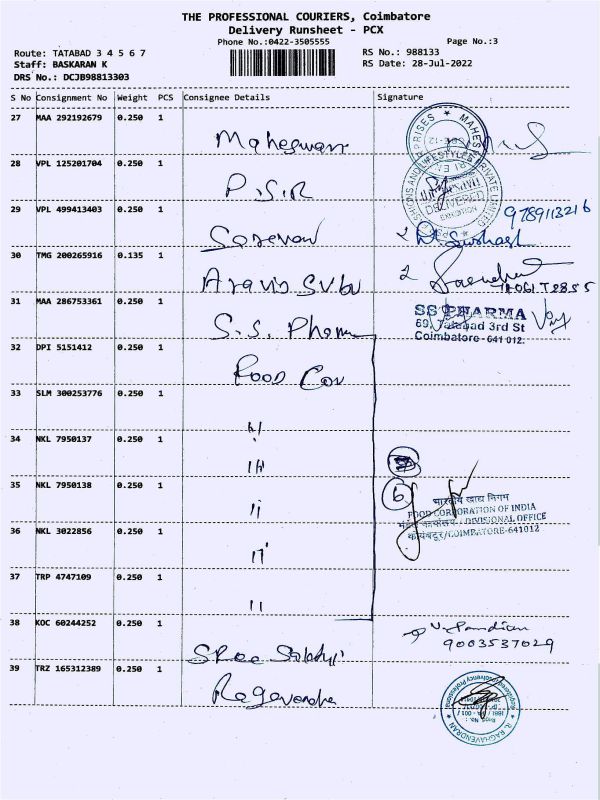 THE PROFESSIONAL COURIERS, Coimbatore
Delivery Runsheet - PCX
Phone No.:0422-3505555
Page No.:3
Route: TATABAD 3 4 5 6 7
RS No.: 988133
Staff: BASKARAN K
RS Date: 28-Jul-2022
DRS No.: DCJB98813303
S No Consignment No Weight PCS Consignee Details Signature
27 MAA 292192679 0.250 1
28 VPL 125201704 0.250 1 P.S.R
29 VPL 499413403 0.250 1
DELIVERED
9789113216
30 TMG 200265916 0.135 1
31 MAA 286753361 0.250 1 S.S. Pharm
SS PHARMA
69, Tatabad 3rd St
Coimbatore- 641 012.
32 DPI 5151412 0.250 1 Food Cor
33 SLM 300253776 0.250 1 "
34 NKL 7950137 0.250 1 "
35 NKL 7950138 0.250 1 "
6
भारतीय खाद्य निगम
FOOD CORPORATION OF INDIA
कार्यालय / DIVISIONAL OFFICE
कोयंबटूर/COIMBATORE-641012
36 NKL 3022856 0.250 1 "
37 TRP 4747109 0.250 1 "
38 KOC 60244252 0.250 1 Sree
V. Pandian
9003537029
39 TRZ 165312389 0.250 1 Ragavendra
R. RAGHAVENDRAN